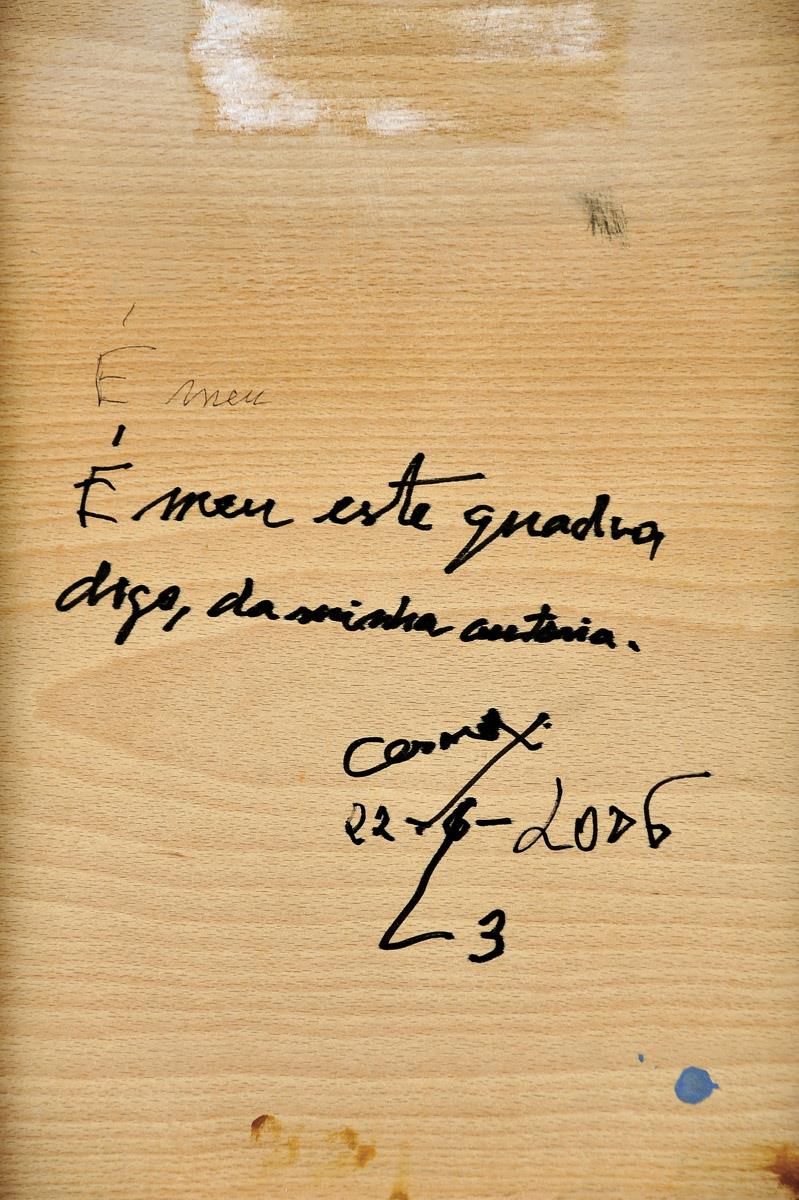 É meu
É meu este quadro,
digo, da minha autoria.
22-6-2006
3